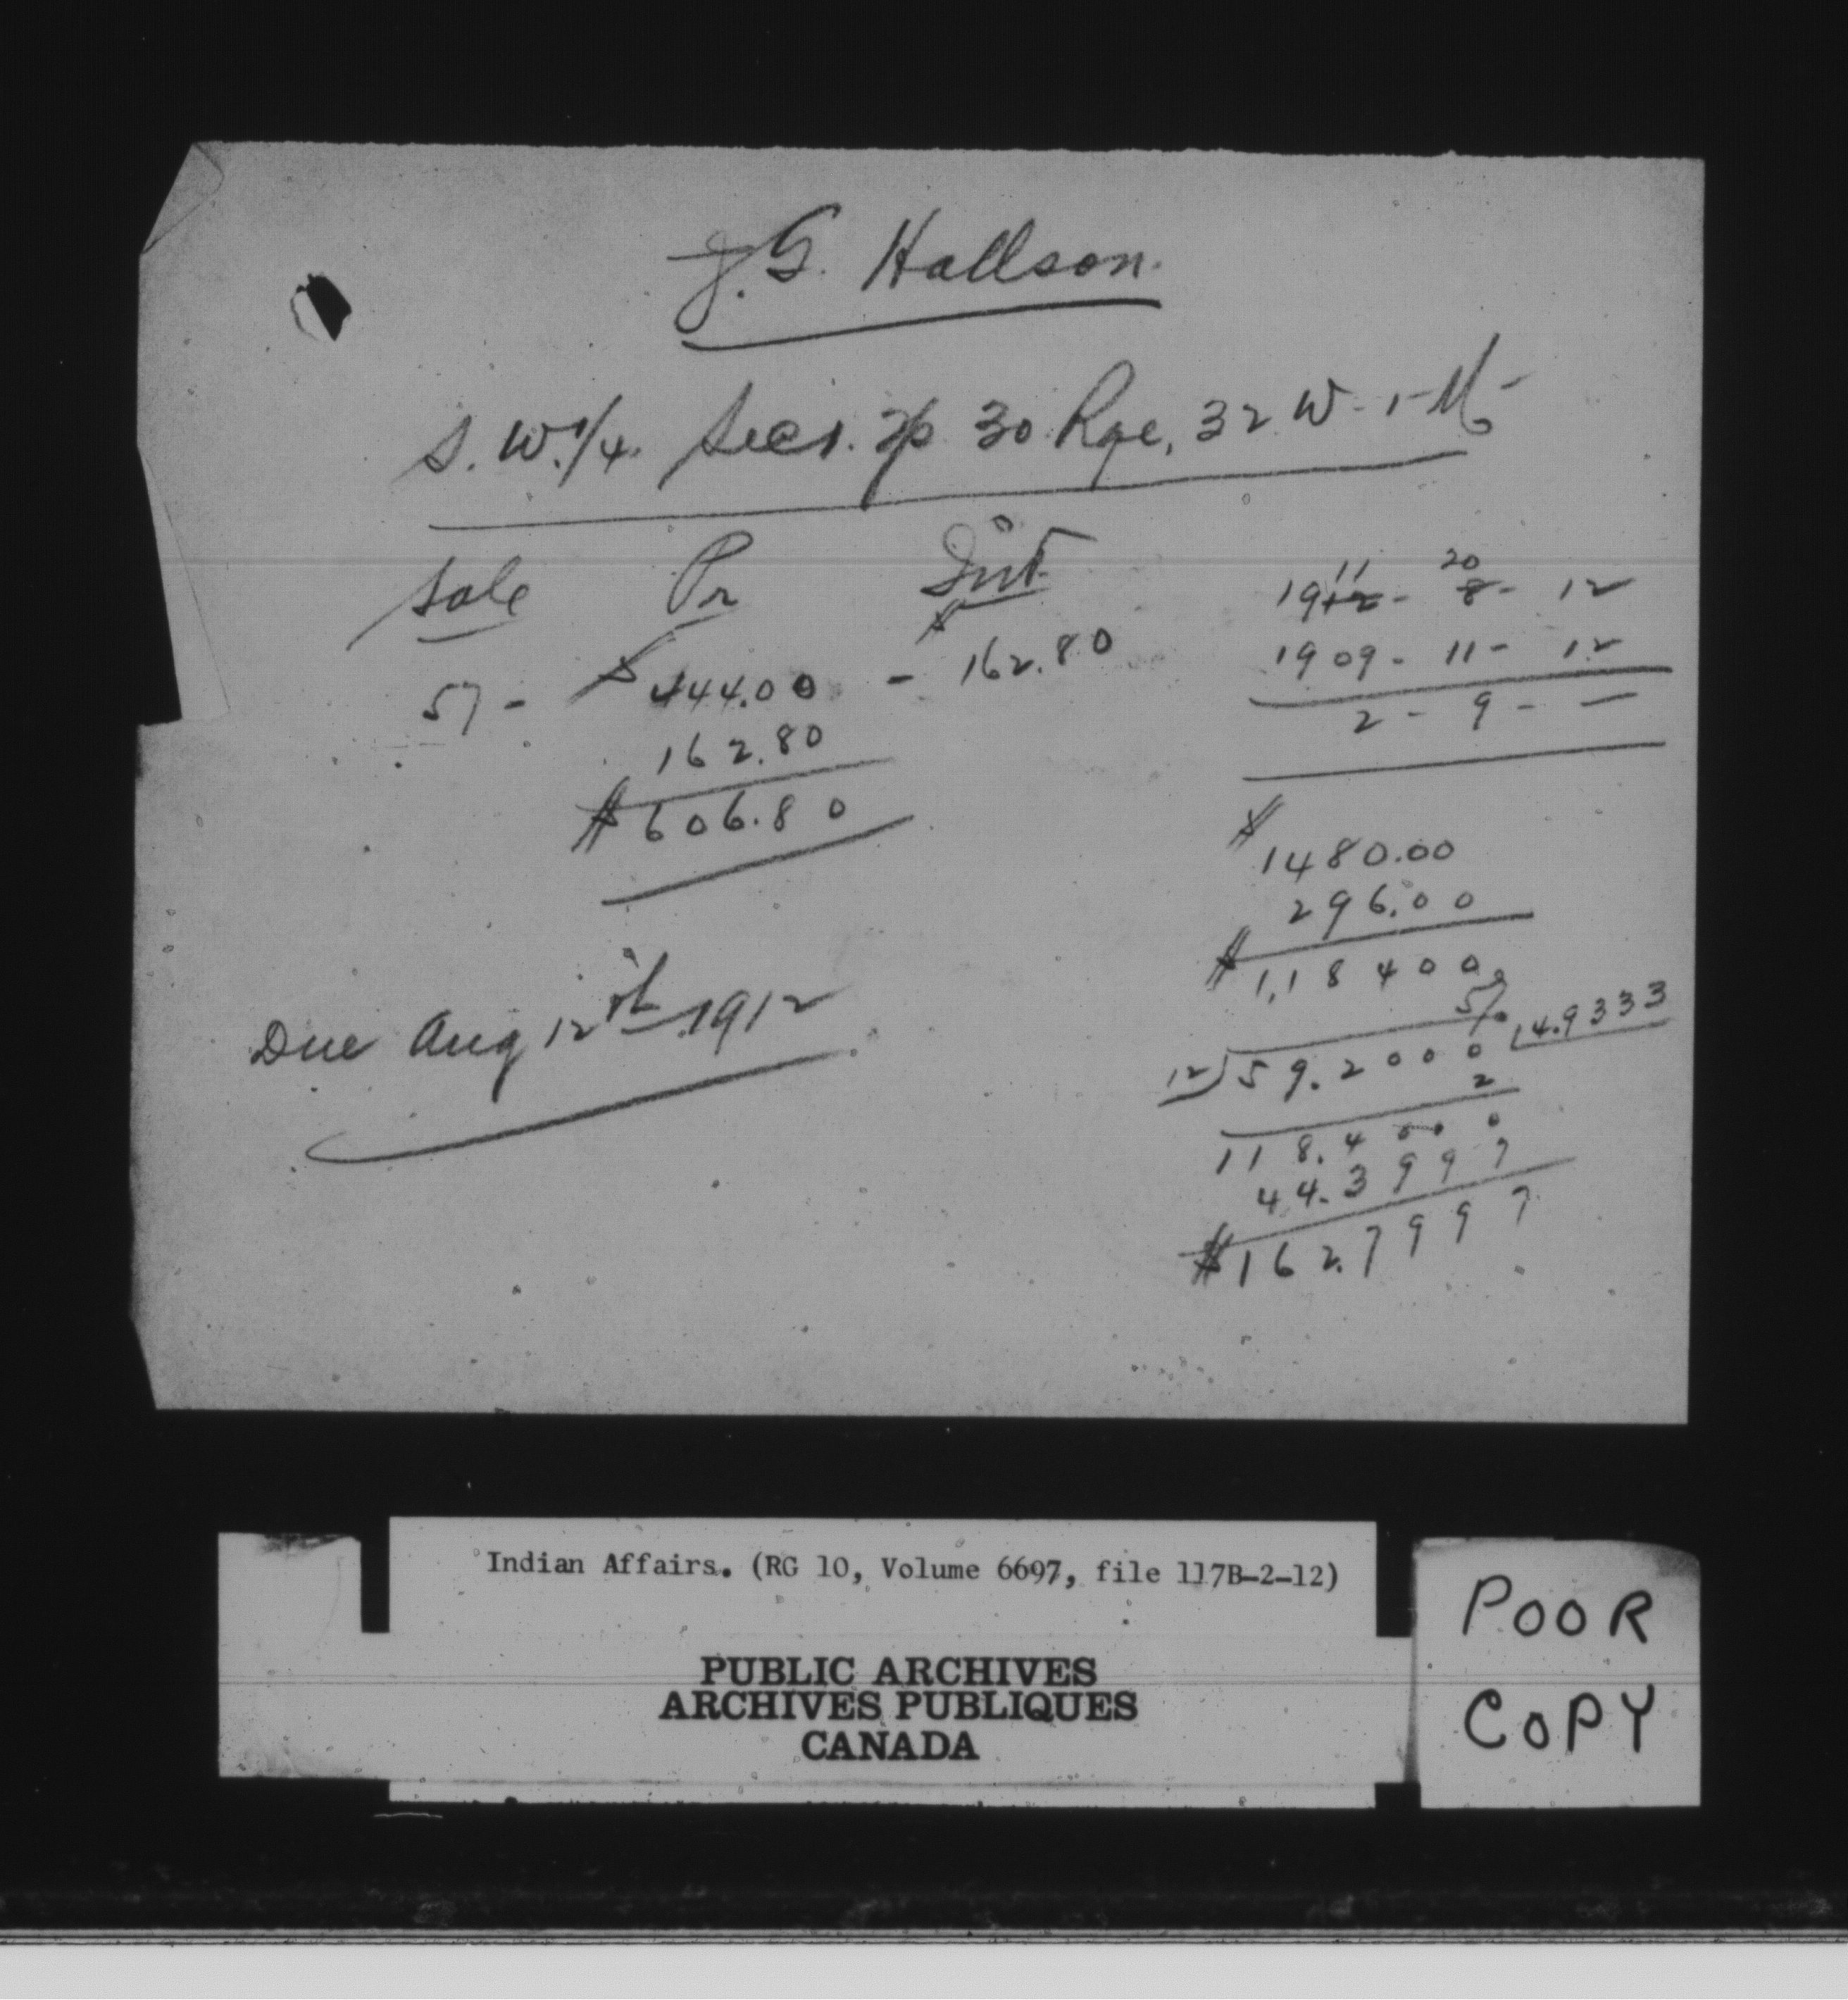 J.G. Hallson.
S. W. 1/4. Sec 1. Tp 30 Rge, 32 W-1-M-
Sale Pr Int
57 - $ 444.00 - $ 162.80
162.80
$ 606.80
Due Aug 12th 1912
11 20
1912 - 8 - 12
1909 - 11 - 12
2 - 9 - —
$
1480.00
296.00
$ 1,18400
5%
12) 59.2000 4.9333
2
118.4000
44.3997
$162.7997
Indian Affairs. (RG 10, Volume 6697, file 117B-2-12)
PUBLIC ARCHIVES
ARCHIVES PUBLIQUES
CANADA
POOR
COPY